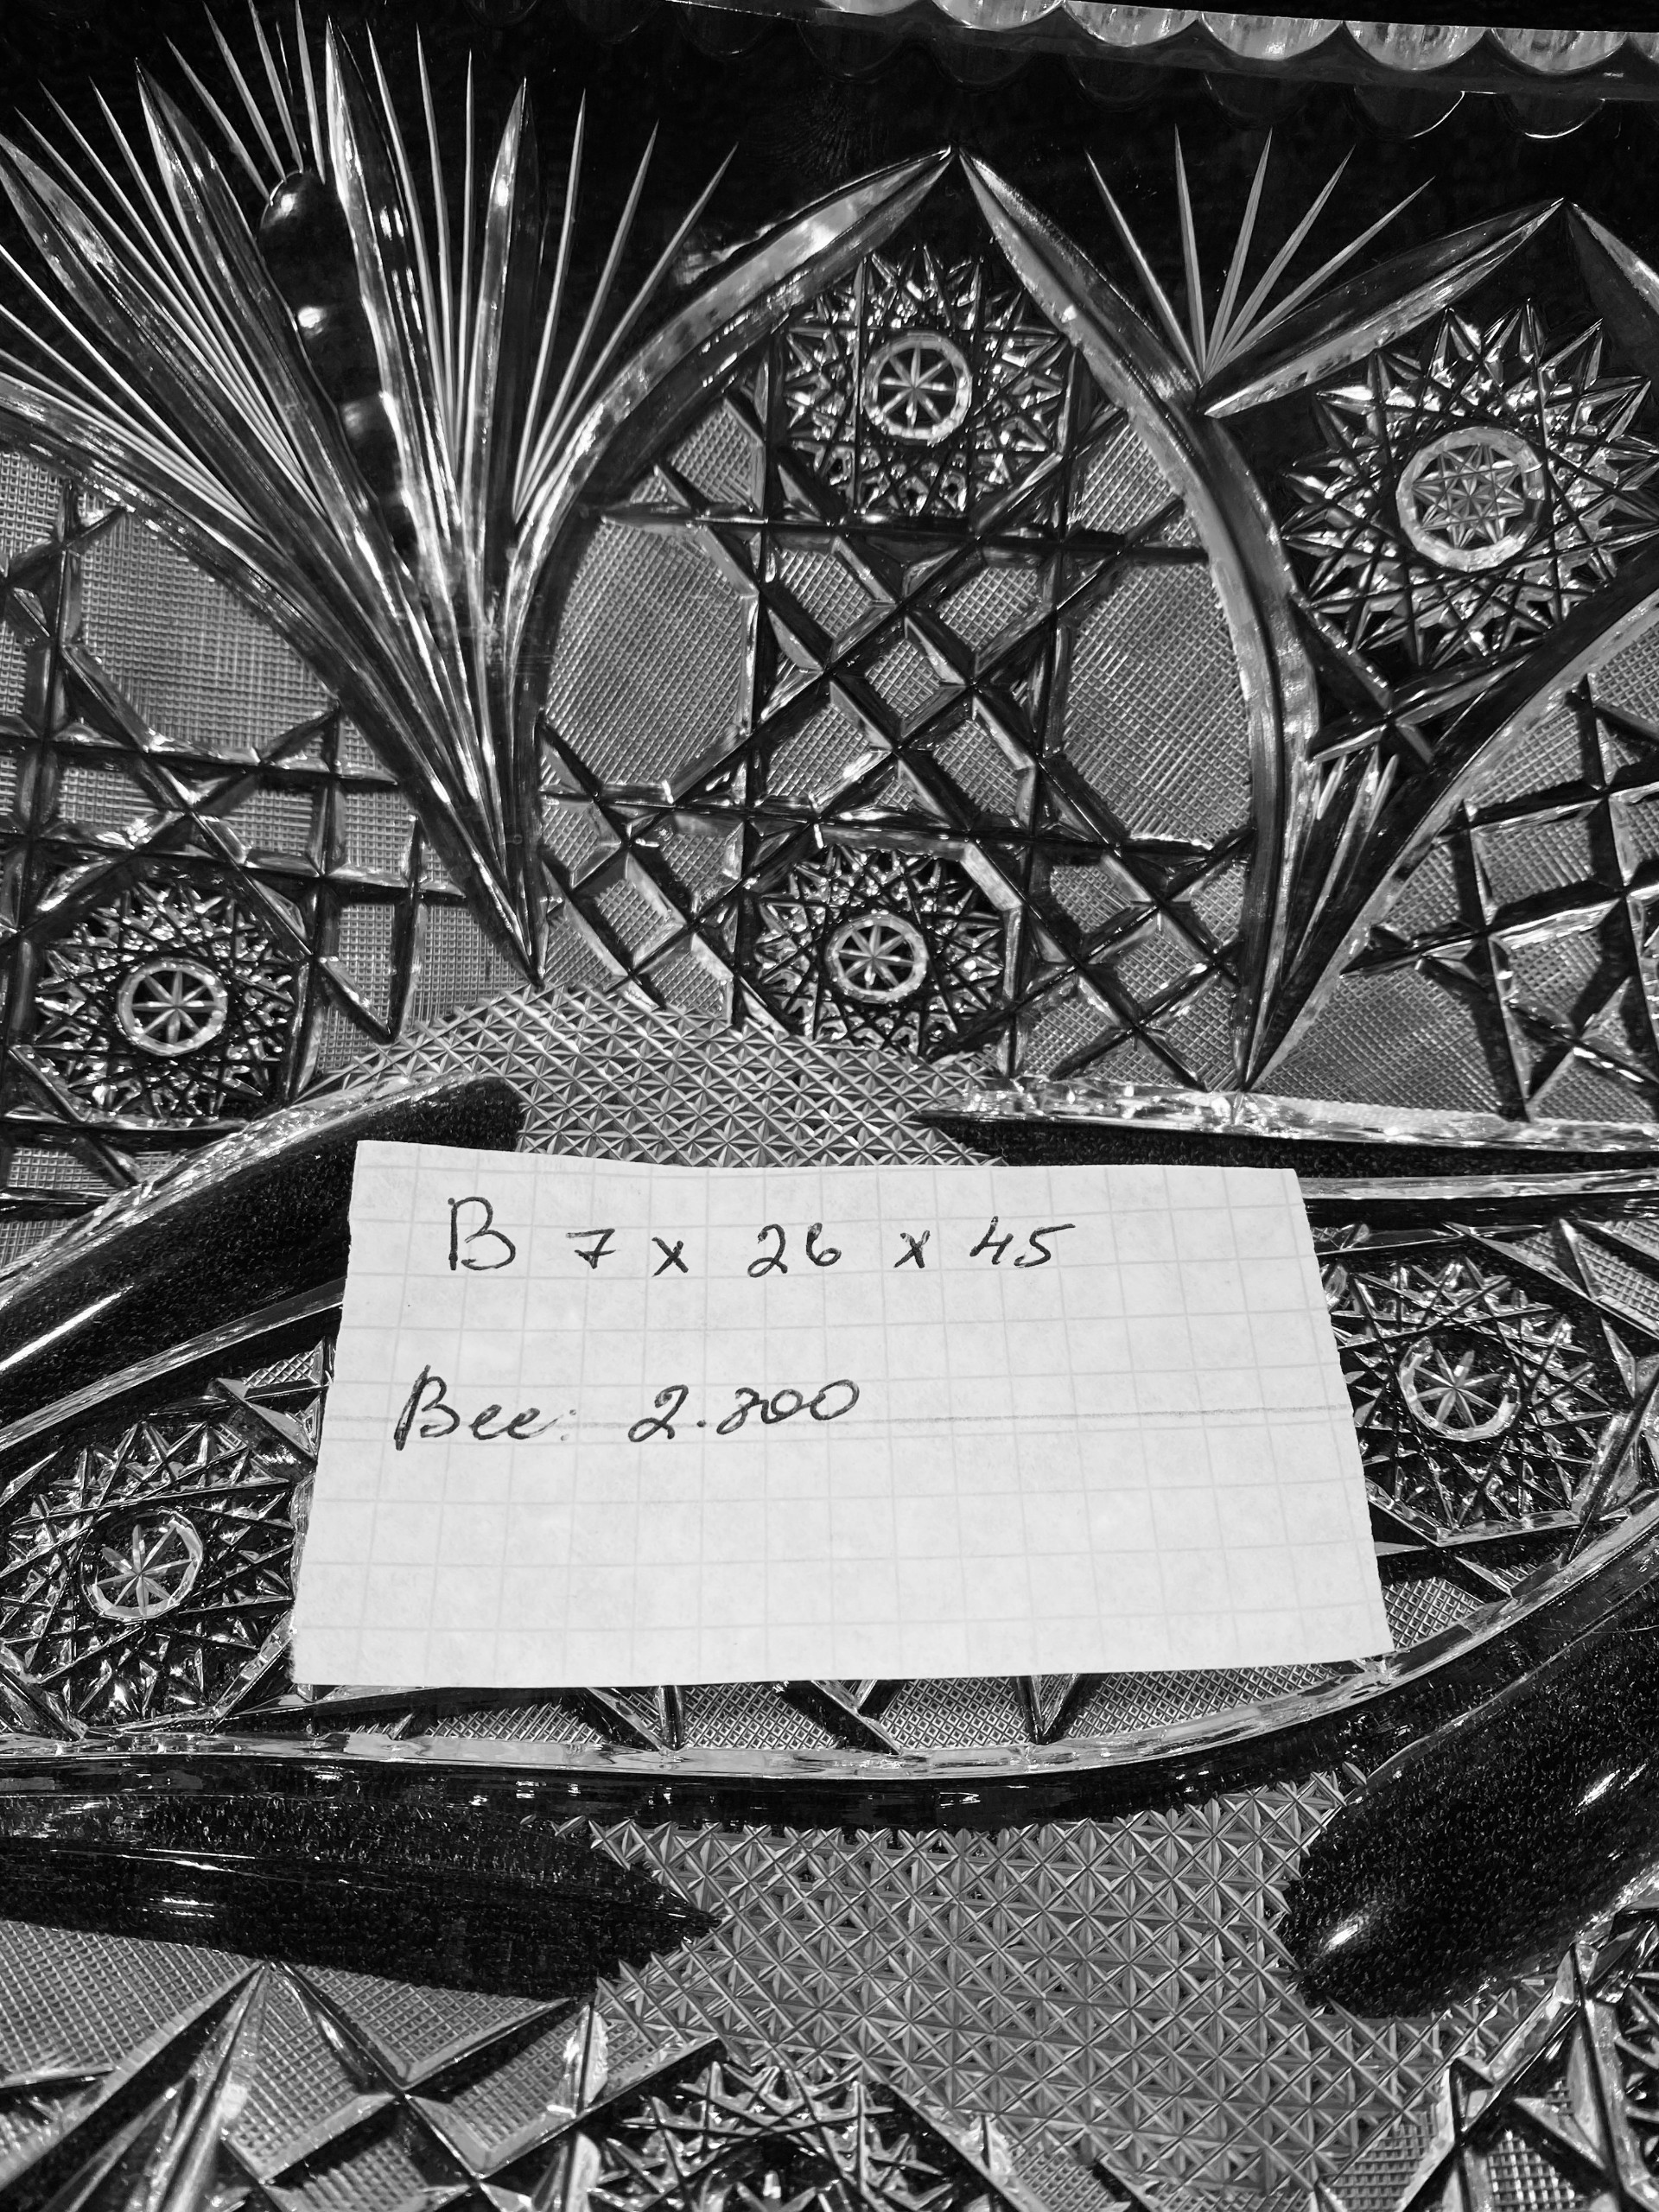 В 7 х 26 х 45
Вес: 2.300